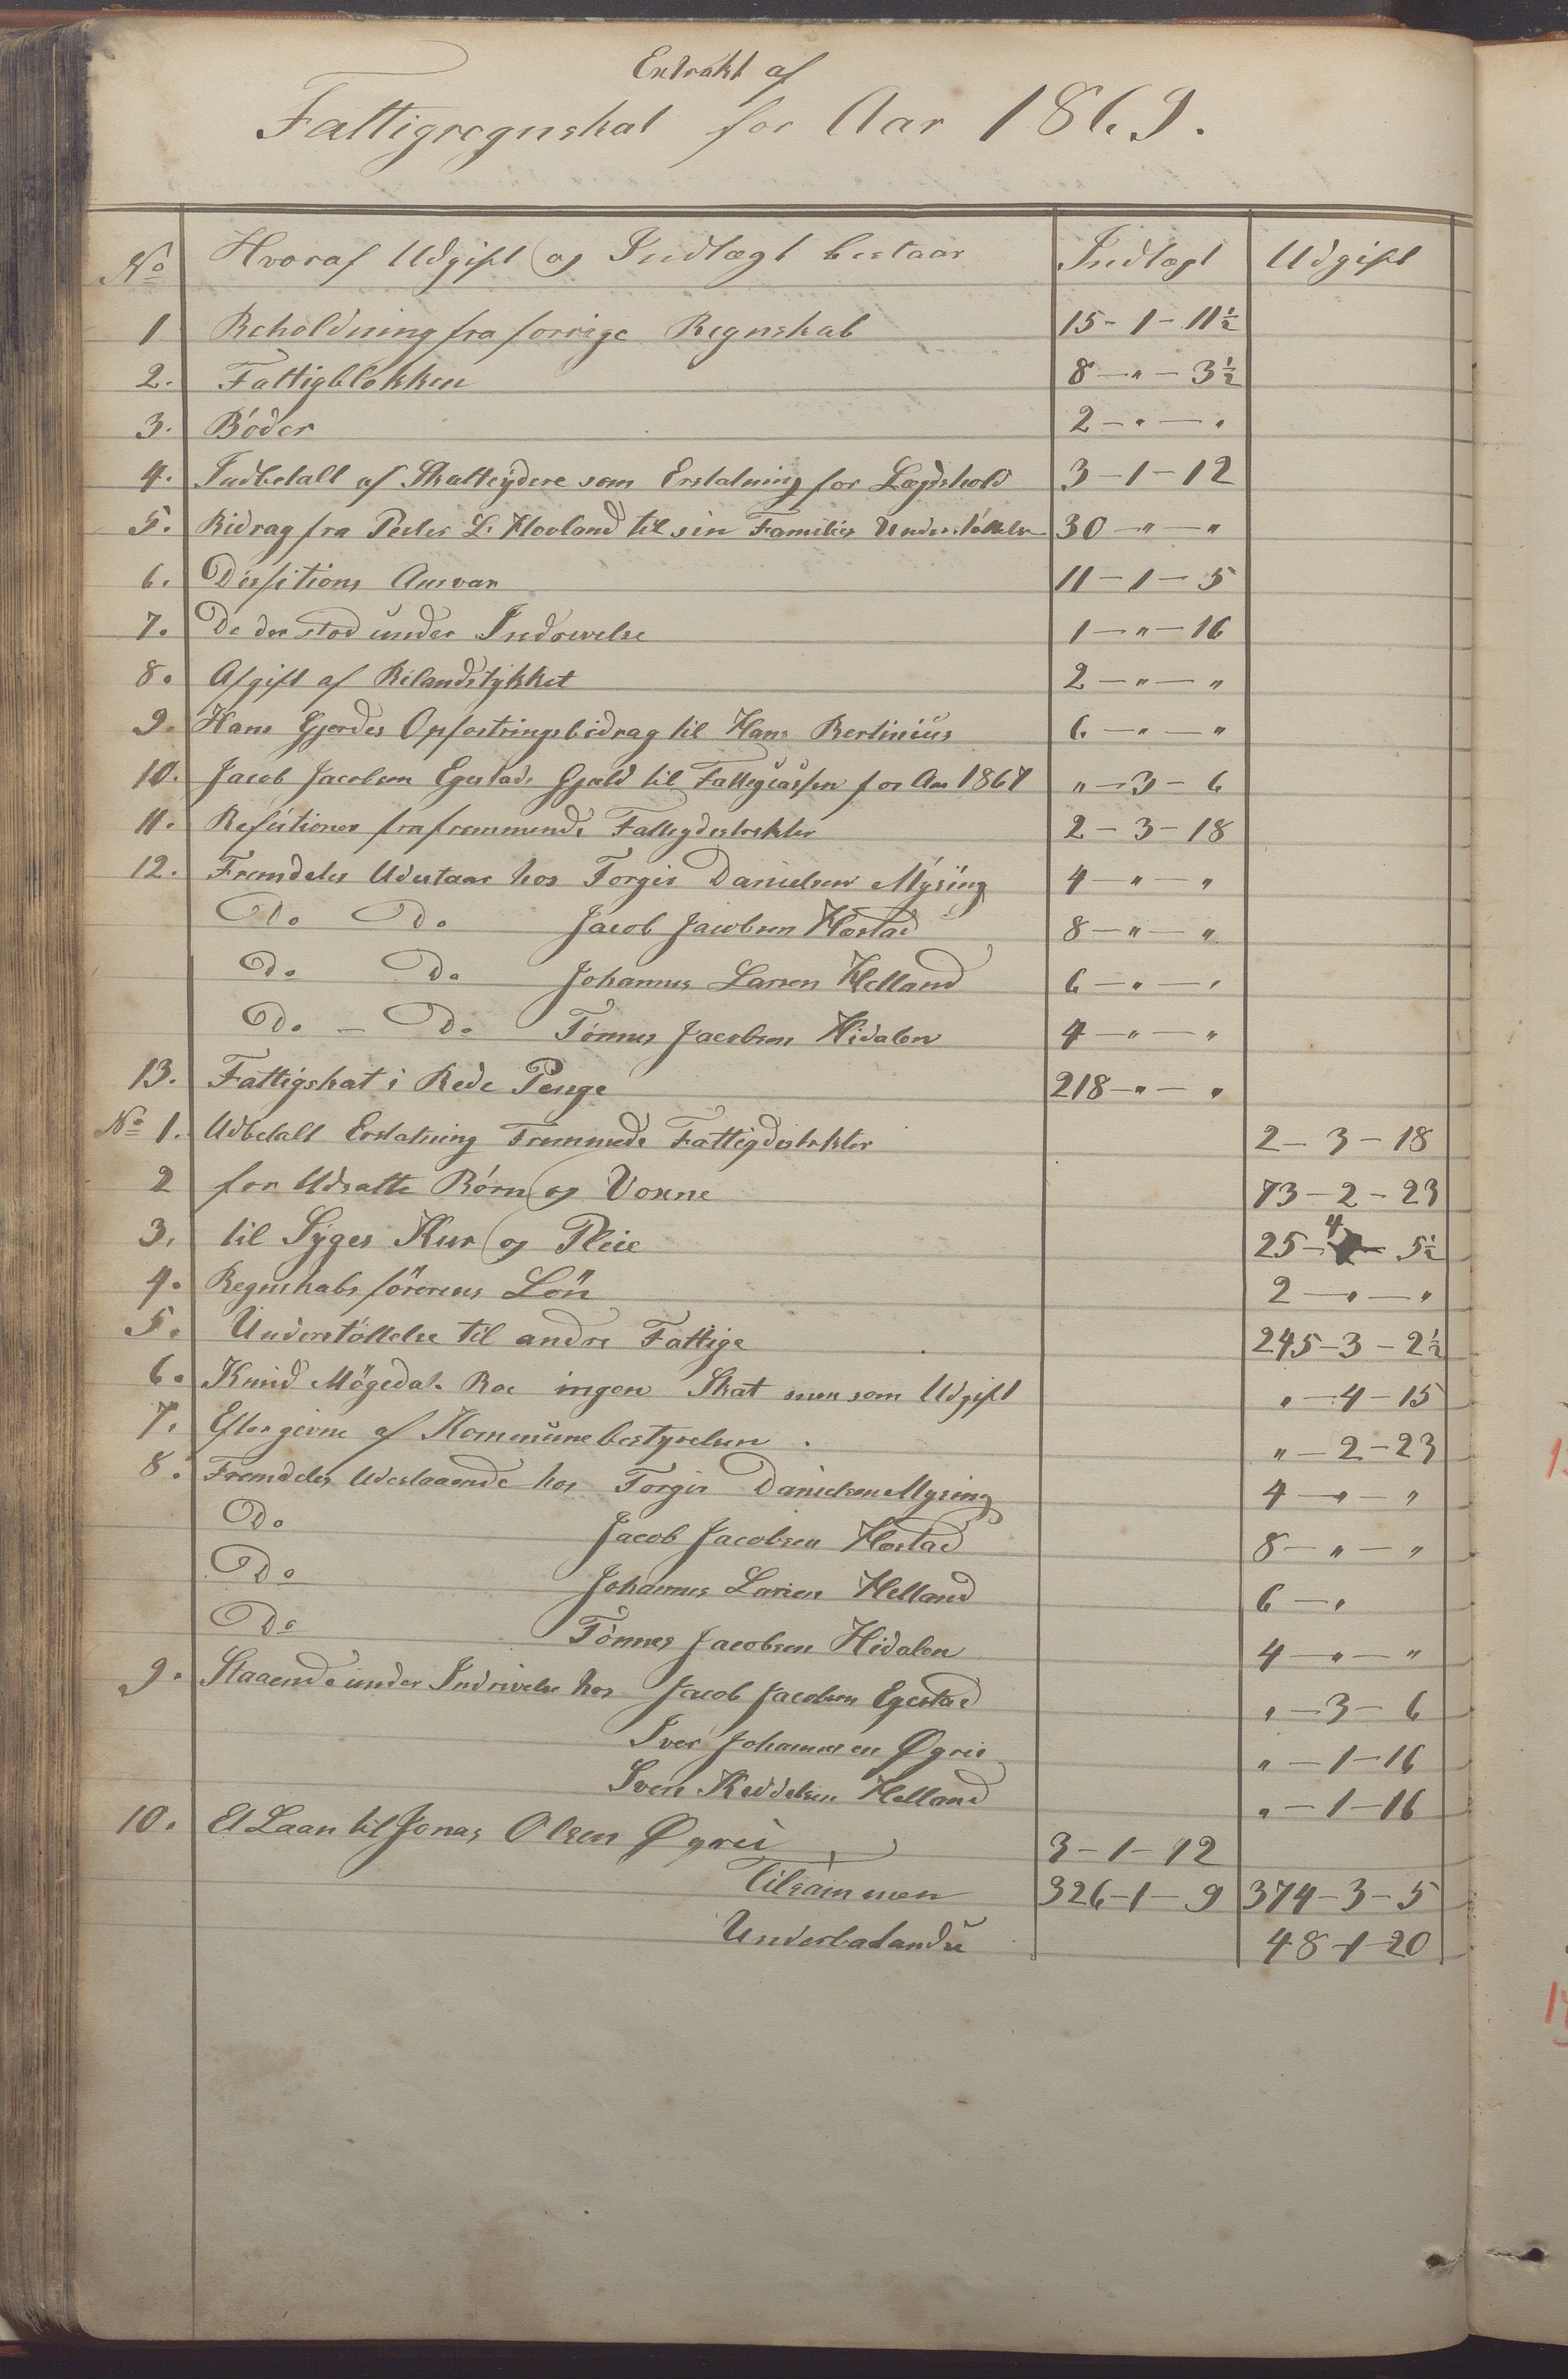 Extrakt af
Fattigregnskab for Aar 1869.
No Hvoraf Udgift og Indtægt bestaar Indtægt Udgift
1 Beholdning fra forrige Regnskab 15-1-11½
2. Fattigblokken 8-"-3½
3. Böder 2-"-"
4. Indbetalt af Skatteydere som Erstatning for Lægdshold 3-1-12
5. Bidrag fra Peder L. Hovland til sin Families Understöttelse 30-"-"
6. Ansvar 11-1-5
7. De der stod under Indrivelse 1-"-16
8. Afgift af 2-"-"
9. Hans Gjerdes Opfostringsbidrag til Hans Bertinius 6-"-"
10. Jacob Jacobsen Egestads Gjæld til Fattigcassen for Aar 1867 "-3-6
11. Refusioner fra fremmende Fattigdistrikter 2-3-18
12. Fremdeles Udestaar hos Torgis Danielsen Mysing 4-"-"
Do Do Jacob Jacobsen Hæstad 8-"-"
Do Do Johannes Larsen Helland 6-"-"
Do - Do Tönnes Jacobsen Hidalen 4-"-"
13. Fattigskat i Rede Penge 218-"-"
No 1. Udbetalt Erstatning Fremmede Fattigdistrikter 2-3-18
2 for Udsatte Börn og Voxne 73-2-23
3. til Syges Kur og Pleie 25-4-5½
4. Regnskabsförerens Lön 2-"-"
5. Understöttelse til andre Fattige 245-3-2½
6. Knud Mögedal ingen Skat som Udgift "-4-15
7. Eftergivne af Kommunebestyrelsen. "-2-23
8. Fremdeles Udestaaende hos Torgis Danielsen Mysing 4-"-"
Do Jacob Jacobsen Hæstad 8-"-"
Do Johannes Larsen Helland 6-"
Do Tönnes Jacobsen Hidalen 4-"-"
9. Staaende under Indrivelse hos Jacob Jacobsen Egestad "-3-6
Iver Johannesen Øgrei "-1-16
Sven Keddelsen Helland "-1-16
10. Et Laan til Jonas Olsen Øgrei 3-1-12
Tilsammen 326-1-9 374-3-5
Underbalance 48-1-20